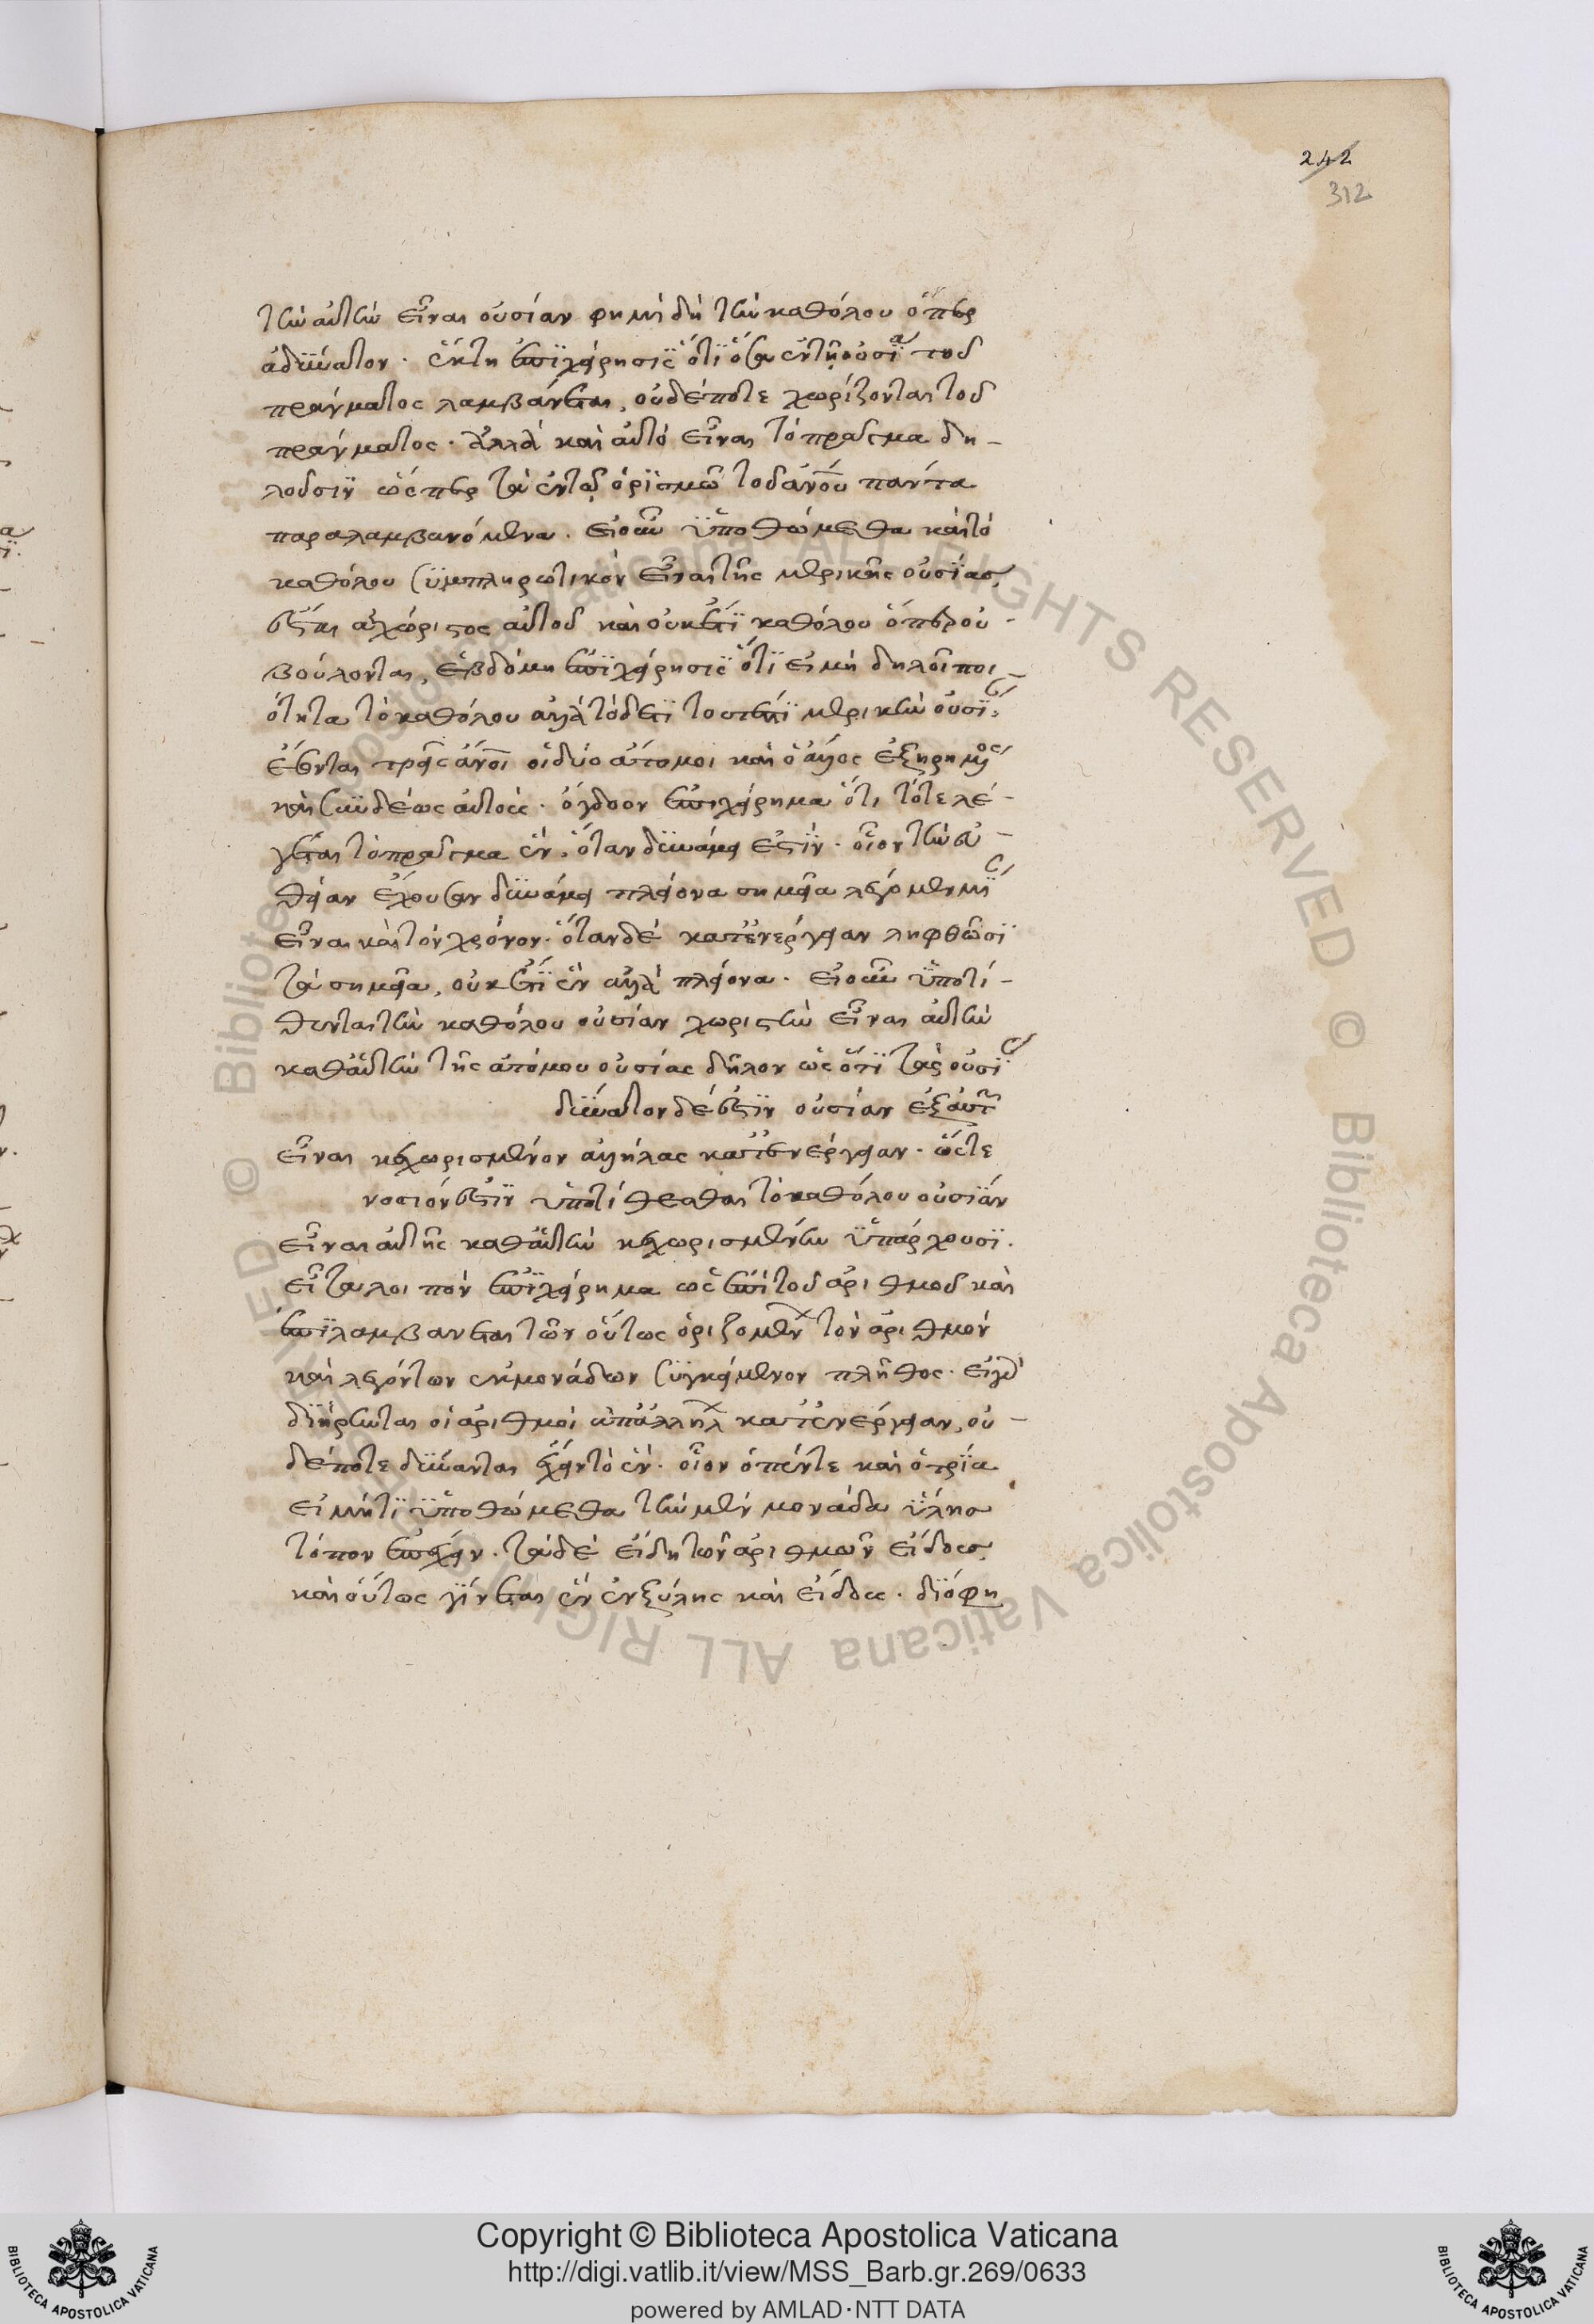 242
312
τὴν αὐτὴν εἶναι οὐσίαν φημὶ δὴ τὴν καθόλου ὅπερ
ἀδύνατον · ἕκτη ἐπιχείρησις ὅτι ὅσα ἐν τῇ οὐσία τοῦ
πράγματος λαμβάνεται, οὐδέποτε χωρίζονται τοῦ
πράγματος · ἀλλὰ καὶ αὐτὸ εἶναι τὸ πρᾶγμα δη-
λοῦσιν ὥσπερ τὰ ἐν τῷ ὁρισμῶ τοῦ ἀνου πάντα
παραλαμβανόμενα · εἰ οὖν ὑποθώμεθα καὶ τὸ
καθόλου συμπληρωτικὸν εἶναι τῆς μερικῆς οὐσίας,
ἔσται ἀχώριστος αὐτοῦ καὶ οὐκ ἔτι καθόλου ὅπερ οὐ
βούλονται, ἑβδόμη ἐπιχείρησις ὅτι εἰ μὴ δηλοῖ ποι-
ότητα τὸ καθόλου ἀλλὰ τόδε τι μερικὴν οὐσί
ἔσονται τρεῖς ἄνοι οἱ δύο ἄτομοι καὶ ὁ ἄλλος ἐξηρημος
καὶ αὐτοῖς · ὄγδοον ἐπιχείρημα ὅτι τότε λέ-
γεται τὸ πρᾶγμα ἓν, ὅταν δυνάμει ἐστὶν · οἷον τὴν εὐ-
θεῖαν ἔχουσαν δυνάμει πλείονα σημεῖα λέγομεν μί
εἶναι καὶ τὸν χρόνον · ὅταν δὲ κατ' ἐνέργειαν ληφθῶσι
τὰ σημεῖα, οὐκ ἔτι ἓν ἀλλὰ πλείονα · εἰ οὖν ὑποτί-
θενται τὴν καθόλου οὐσίαν χωριστὴν εἶναι αὐτὴν
καθ' αὑτὴν τῆς ἀτόμου οὐσίας δῆλον ὡς ὅτι τὰς οὐσί
δύνατον δέ ἐστιν οὐσίαν ἐξ αὐτ
εἶναι κεχωρισμένον ἀλλήλας κατ' ἐνέργειαν · ὥστε
νοσιόν ἐστιν ὑποτίθεσθαι τὸ καθόλου οὐσίαν
εἶναι αὐτῆς καθ' αὑτὴν κεχωρισμένην ὑπάρχουσι ·
εἶτα λοιπὸν ἐπιχείρημα ὡς ἐπὶ τοῦ ἀριθμοῦ καὶ
ἐπιλαμβάνεται τῶν οὕτως ὁριζομέν τὸν ἀριθμὸν
καὶ λεγόντων ἐκ μονάδων συγκείμενον πλῆθος · εἰ γὰρ
διήρηνται οἱ ἀριθμοὶ ἀπ' ἀλλήλ κατ' ἐνέργειαν, οὐ-
δέποτε δύνανται ἔχειν τὸ ἓν · οἷον ὁ πέντε καὶ ὁ τρία
εἰ μή τι ὑποθώμεθα τὴν μὲν μονάδα ὕλης
τόπον ἐπέχειν · τὰ δὲ εἴδη τῶν ἀριθμῶν εἴδους
καὶ οὕτως γίνεται ἓν ἐξ ὕλης καὶ εἴδους · διό φη
Copyright © Biblioteca Apostolica Vaticana
http://digi.vatlib.it/view/MSS_Barb.gr.269/0633
powered by AMLAD·NTT DATA
BIBLIOTECA APOSTOLICA VATICANA
BIBLIOTECA APOSTOLICA VATICANA